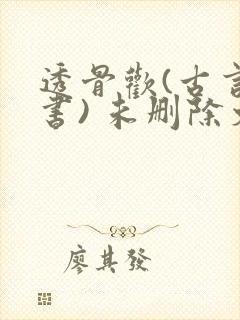 透骨歡(古言
書)未刪除
廖其發